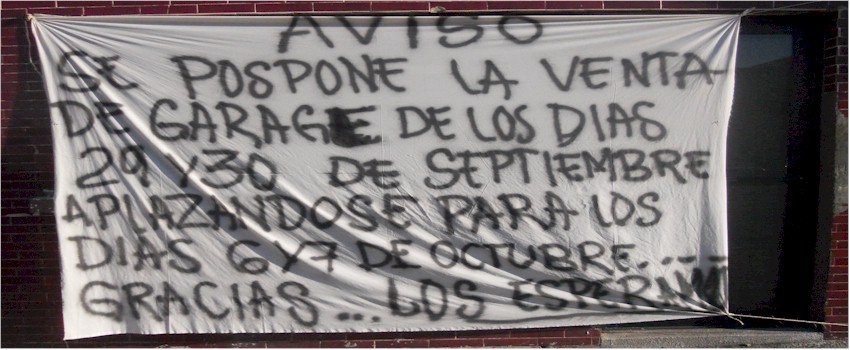 AVISO
SE POSPONE LA VENTA
DE GARAGE DE LOS DIAS
29 Y 30 DE SEPTIEMBRE
APLAZANDOSE PARA LOS
DIAS 6 Y 7 DE OCTUBRE.....
GRACIAS... LOS ESPERAMOS